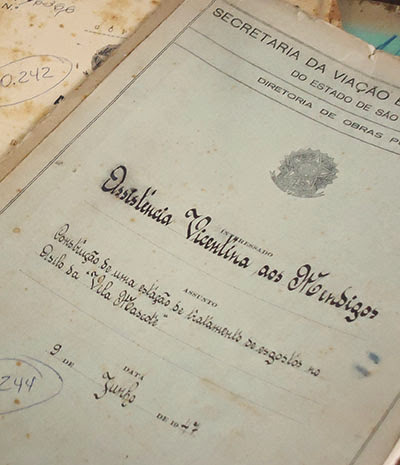 0.242
SECRETARIA DA VIAÇÃO E
DO ESTADO DE SÃO
DIRETORIA DE OBRAS PÚ
INTERESSADO
Assistência Vicentina aos Mendigos
ASSUNTO
Construção de uma estação de tratamento de esgostos no
Asilo da "Vila Mascote"
DATA
9 DE Junho DE 1947
244